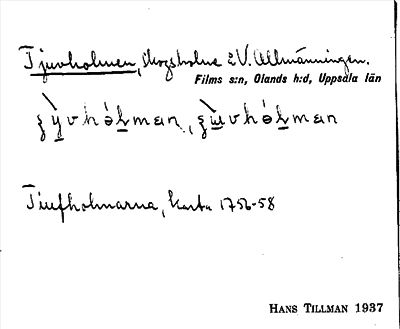 Tjuvholmen, skogsholme i V. Allmänningen.
Films s:n, Olands h:d, Uppsala län
Tiufholmarna, karta 1756-58
HANS TILLMAN 1937